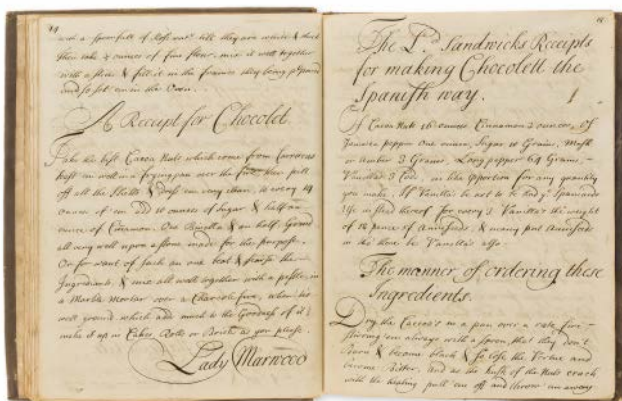 with a spoonfull of Rose watr till they are white & thick
then take 4 ounces of fine flour, mix it well together
with a slice & fill it in the frames they being prpared
and so set em in the Oven.
A Receipt for Chocolet
Take the best Cacoa Nuts which come from Carraccus
rost em well in a frying pan over the fire then pull
off all the Shells & dress em very clean, to every 14
ounces of em add 10 ounces of Sugar & half an
ounce of Cinamon. One Vinella & an half. Grind
all very well upon a stone made for this purpose.
Or for want of such an one beat & searse the
Ingredients & mix all well together with a pestle in
a Marble Mortar over a Charcole fire, when tis
well ground which adds much to the Goodness of it
make it up in Cakes, Rolls or Bricks as you please.
Lady Marwood
The Ld Sandwicks Receipts
for making Chocolett the
Spanish way.
Of Cacoa Nutts 16 ounces Cinnamon 2 ounces, Of
Jamaica pepper One ounce, Sugar 10 Grains, Musk
or Amber 3 Grains, Long pepper 64 Grains,
Vanillas 3 Cods, in like pportion for any quantity
you make. If Vanilla's be not to be had ye Spaniards
use in stead thereof for every 3 Vanilla's the weight
of of Anniseeds & many put Anniseeds
in tho there be Vanilla's also.
The manner of ordering these
Ingredients.
Dry the Cacoa's in a pan over a fire
stirring em always with a spoon that they don't
burn & become black & so lose the Virtue and
become Bitter, and as the husk of the Nuts crack
with the heating pull em off and throw em away